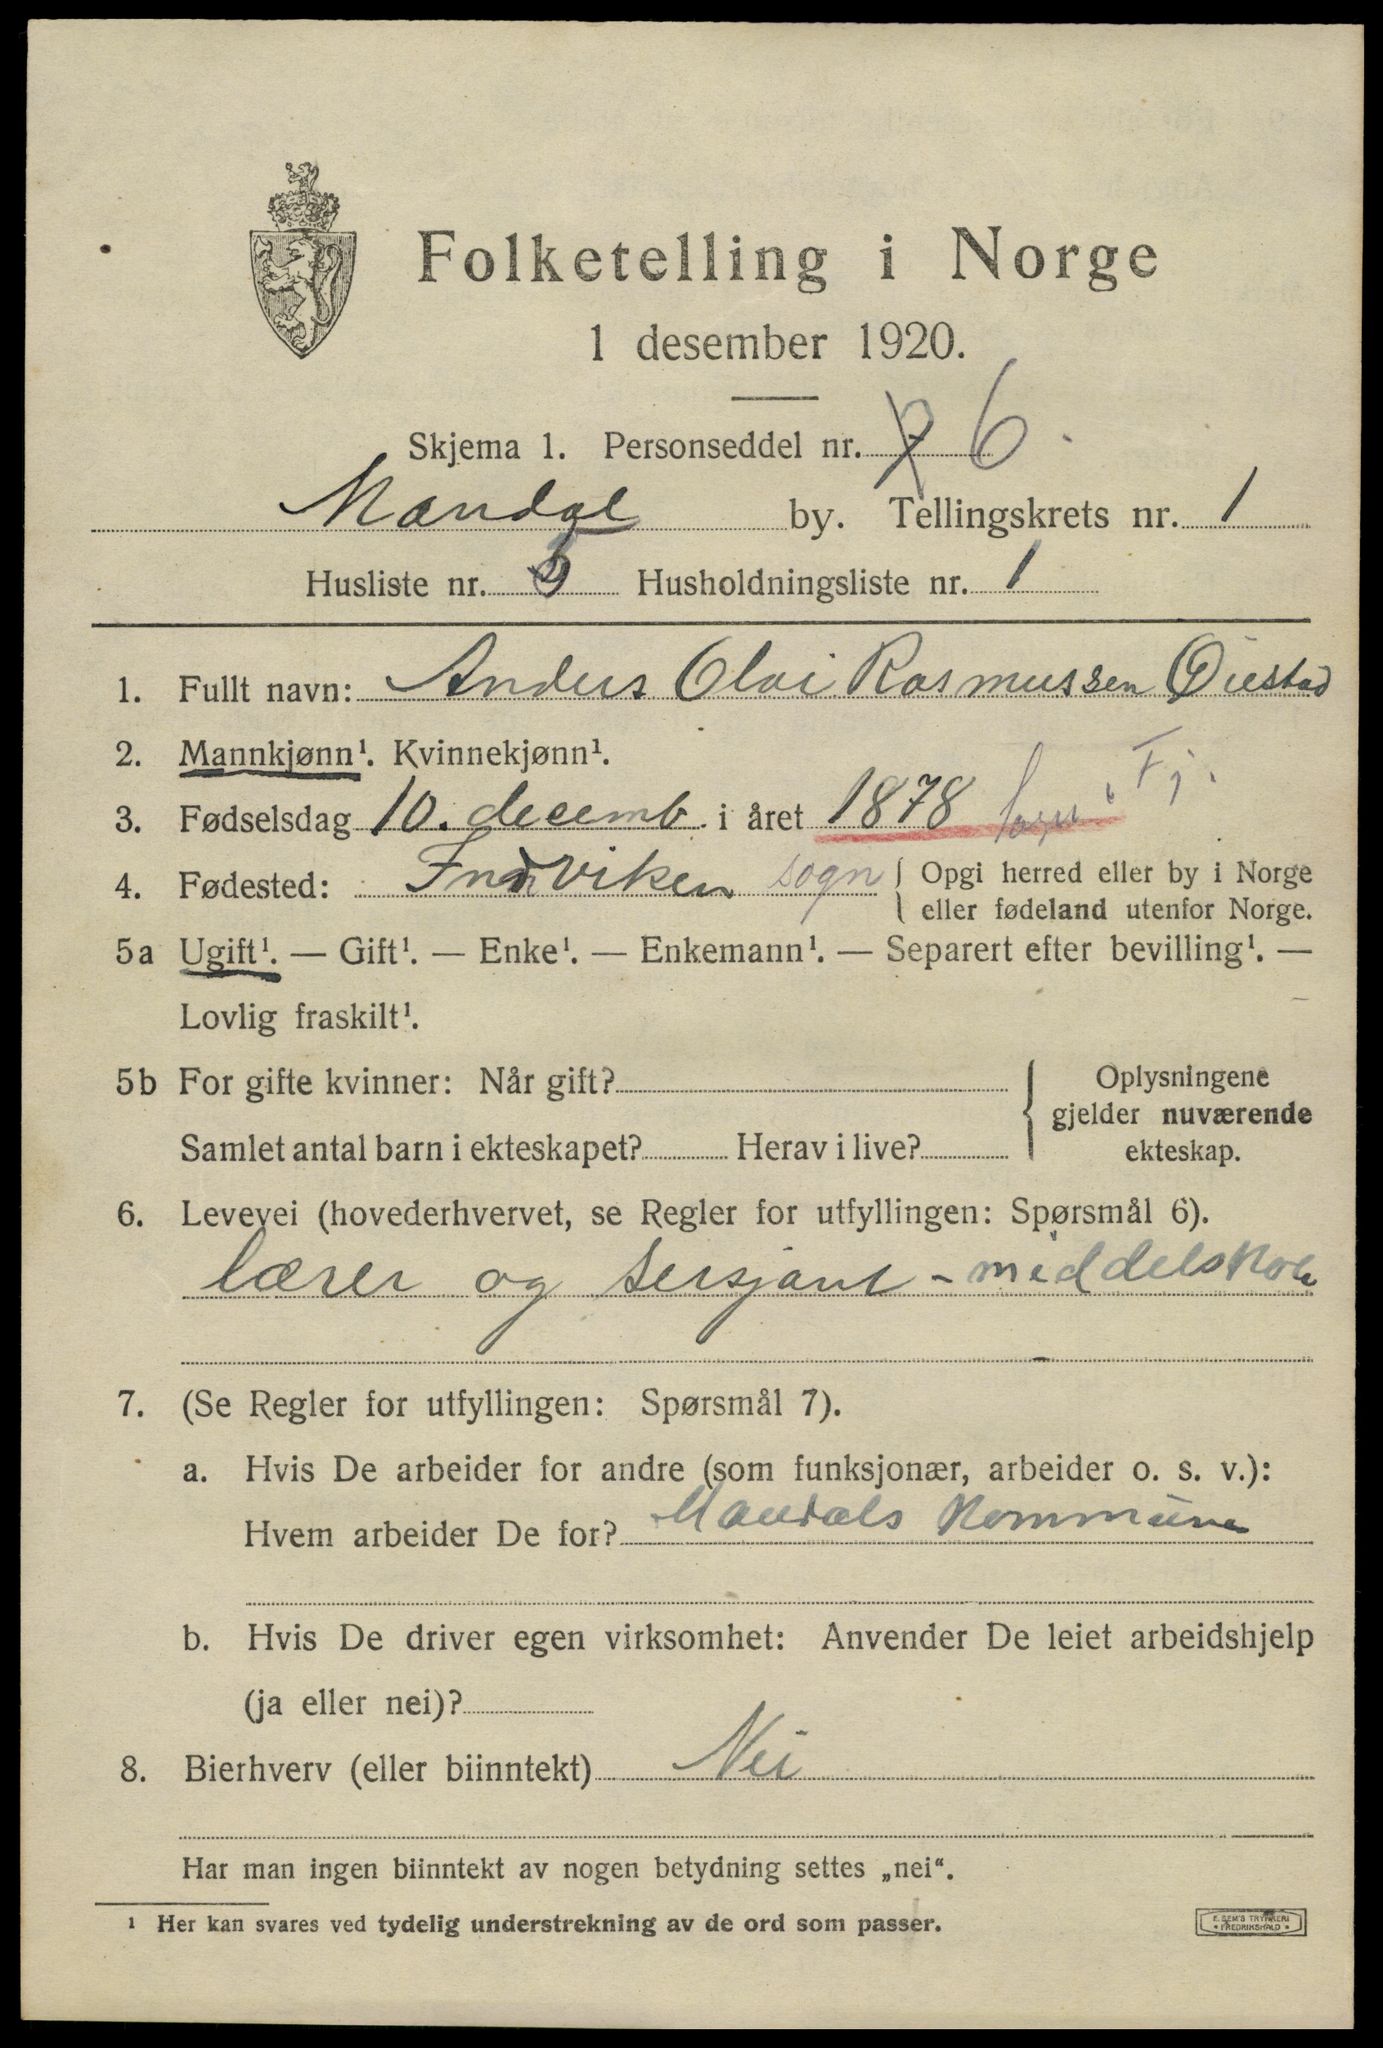 Folketelling i Norge
1 desember 1920.
Skjema 1. Personseddel nr. 7 6
Mandal by. Tellingskrets nr. 1
Husliste nr. 5 Husholdningsliste nr. 1
1. Fullt navn: Anders Olai Rasmussen Øiestad
2. Mannkjønn¹. Kvinnekjønn¹.
3. Fødselsdag 10. decemb. i året 1878 Sogn Fj.
4. Fødested: Indviken sogn { Opgi herred eller by i Norge
eller fødeland utenfor Norge.
5a Ugift¹. — Gift¹. — Enke¹. — Enkemann¹. — Separert efter bevilling¹. —
Lovlig fraskilt¹.
5b For gifte kvinner: Når gift? { Oplysningene
gjelder nuværende
Samlet antal barn i ekteskapet? Herav i live? ekteskap.
6. Levevei (hovederhvervet, se Regler for utfyllingen: Spørsmål 6).
lærer og sersjant - middelskole
7. (Se Regler for utfyllingen: Spørsmål 7).
a. Hvis De arbeider for andre (som funksjonær, arbeider o. s. v.):
Hvem arbeider De for? Mandals Kommune
b. Hvis De driver egen virksomhet: Anvender De leiet arbeidshjelp
(ja eller nei)?
8. Bierhverv (eller biinntekt) Nei
Har man ingen biinntekt av nogen betydning settes „nei“.
¹ Her kan svares ved tydelig understrekning av de ord som passer.
E. SEM'S TRYKKERI
* FREDRIKSHALD *